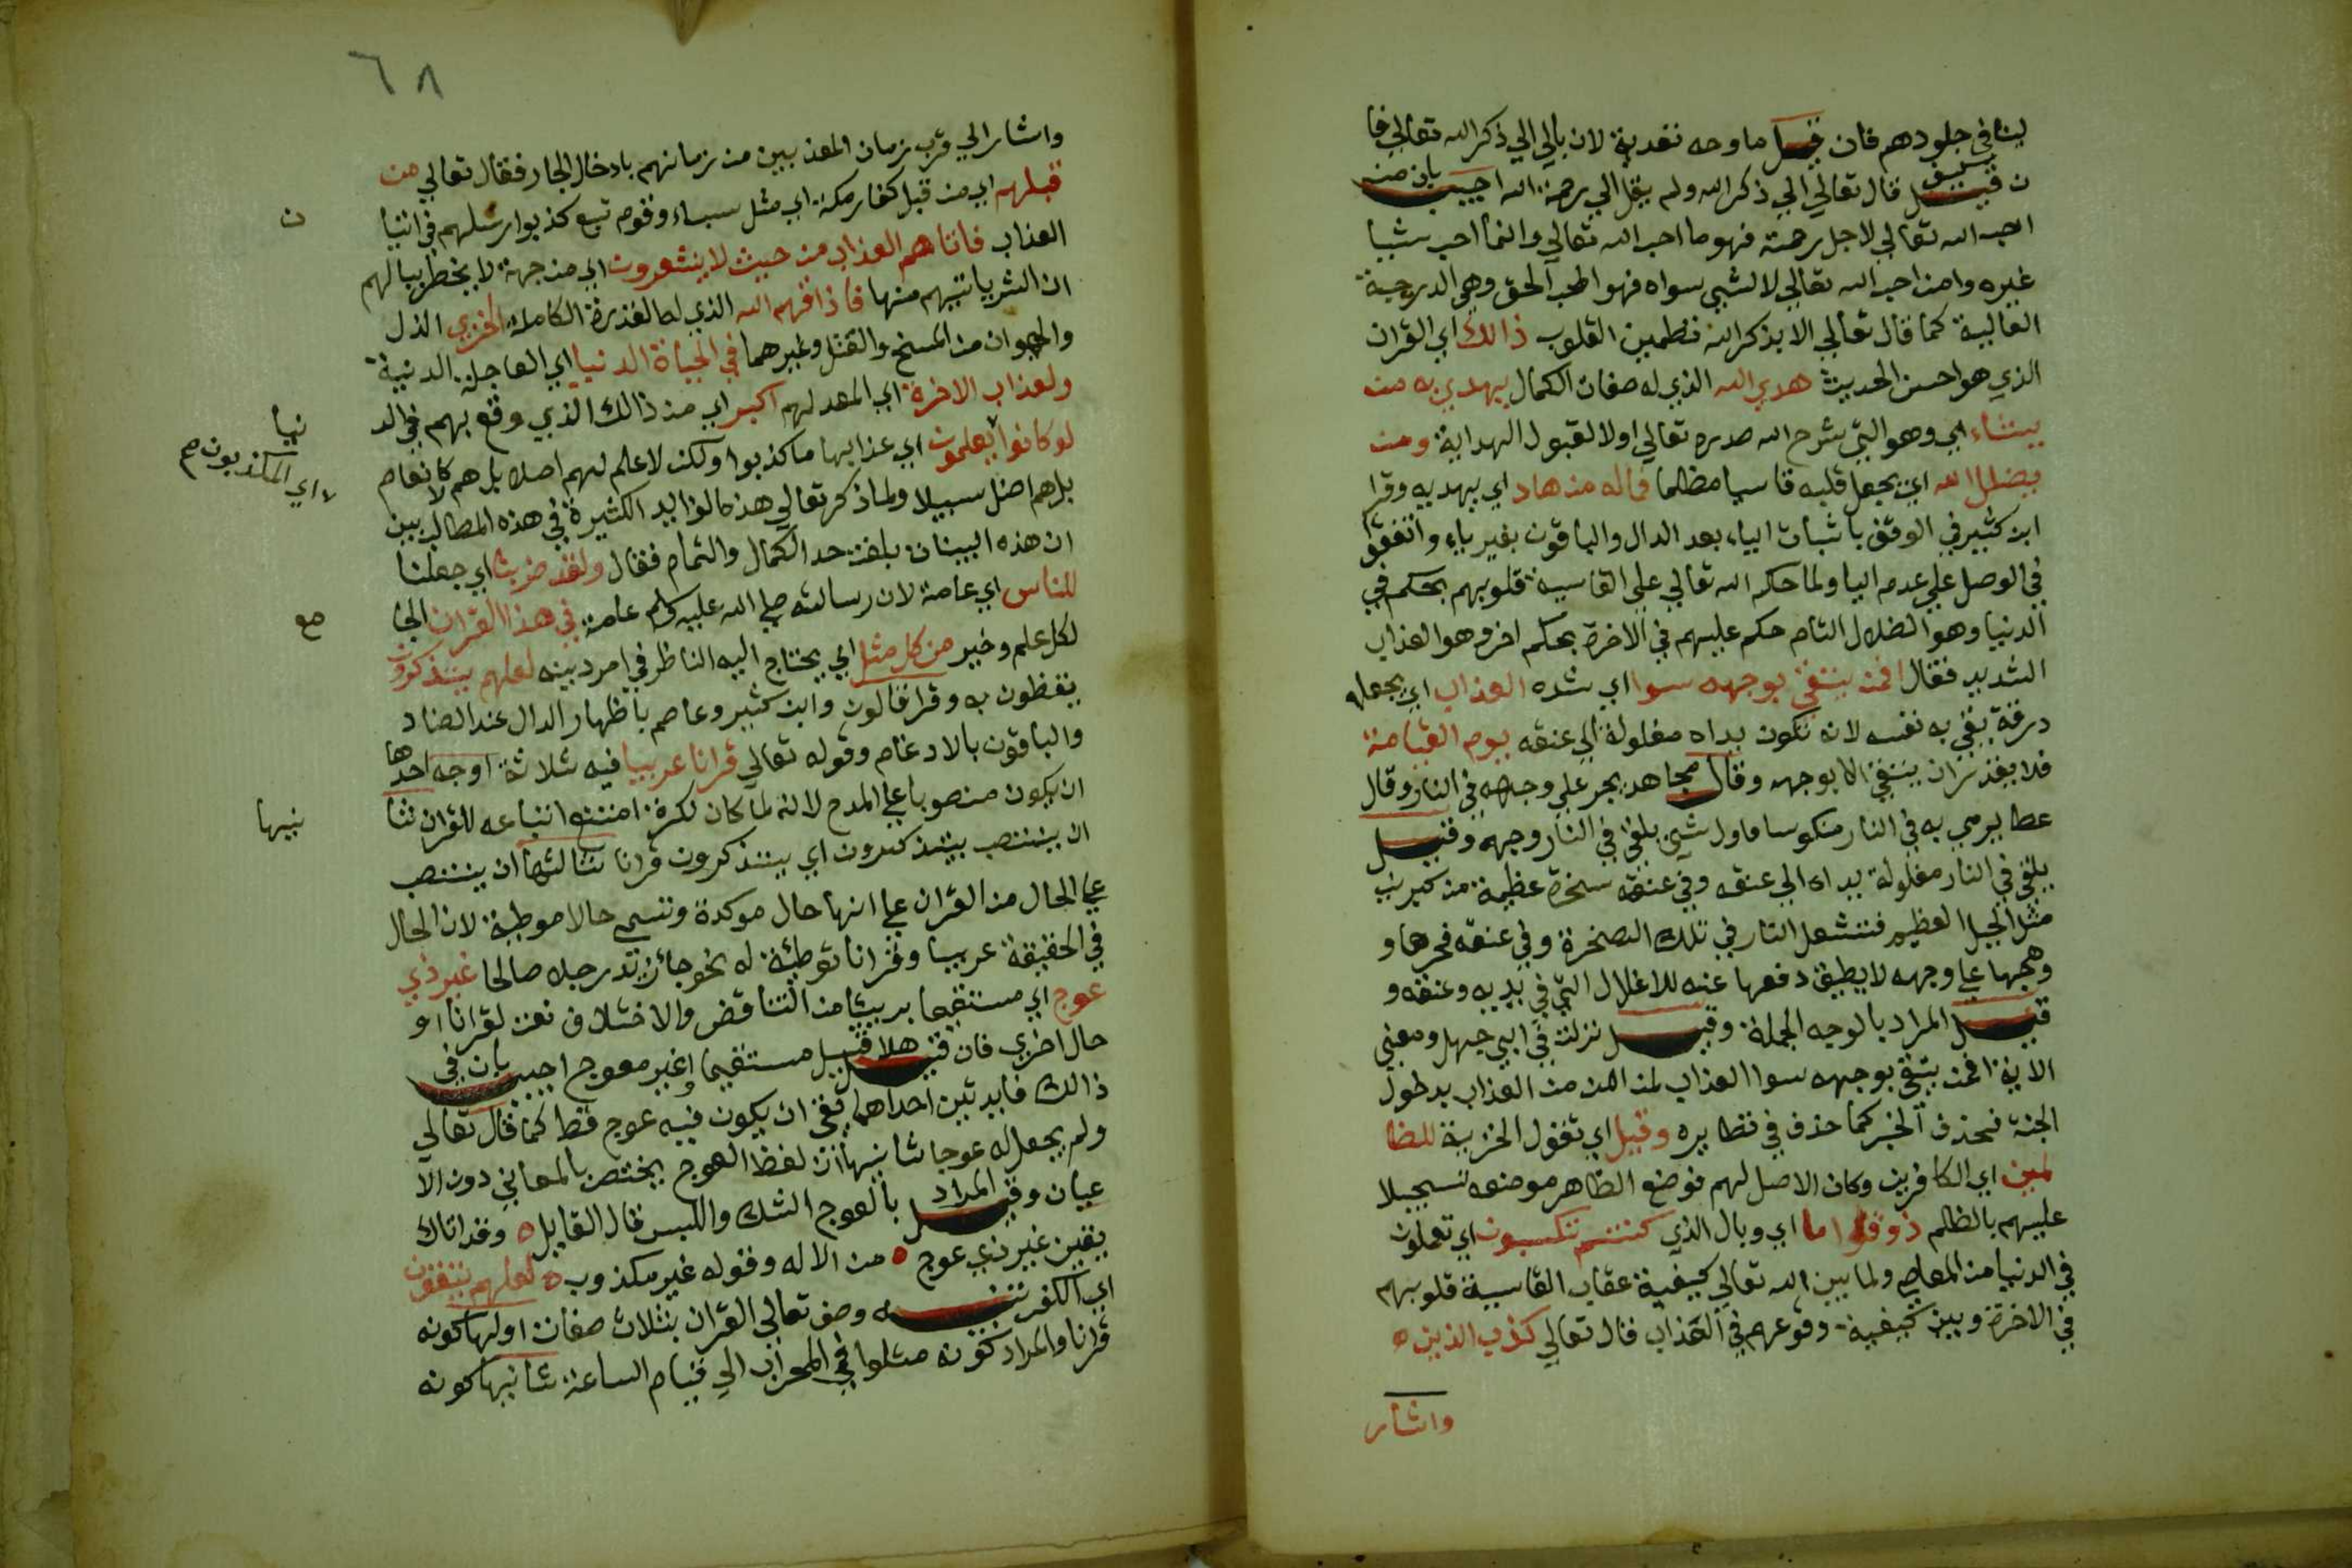 لينا في جلودهم فان قيل ما وجه تعدية لان بالي الي ذكر الله تعالي فا
ن قيل كيف قال تعالي الي ذكر الله ولم يقل الي رحمة الله اجيب بان من
احب الله تعالي لاجل رحمته فهو ما احب الله تعالي وانما احب شيا
غيره وامن احب الله تعالي لا لشيي سواه فهو المحب الحق وهي الدرجة
العالية كما قال تعالي الا بذكر الله تطمين القلوب ذالك اي القران
الذي هو احسن الحديث هدي الله الذي له صفات الكمال يهدي به من
يشاء اي وهو التي شرح الله صدره تعالي اولا لقبول الهداية ومن
يضلل الله اي يجعل قلبه قاسيا مظلما فما له من هاد اي يهديه وقرا
ابن كثير في الوقف باثبات الياء بعد الدال والباقون بغير ياء واتفقوا
في الوصل علي عدم اليا ولما حكم الله تعالي علي القاسية قلوبهم بحكم في
الدنيا وهو الضلال التام حكم عليهم في الاخرة بحكم اخر وهو العذاب
الشديد فقال افمن يتقي بوجهه سوا اي شده العذاب اي يجعله
درقة يقي به نفسه لانه تكون يداه مغلولة الي عنقه يوم القيامة
فلا يقدر ان يتقي الا بوجهه وقال مجاهد يجر علي وجهه في النار وقال
عطا يرمي به في النار منكوسا فاول شيئ يلقي في النار وجهه وقيل
يلقي في النار مغلولة يداه الي عنقه وفي عنقه سخرة عظيمة من كبريت
مثل الجبل العظيم فتشعل النار في تلك الصخرة وفي عنقه فحرها و
وهجها علي وجهه لا يطيق دفعها عنه للاغلال التي في يديه وعنقه و
قيل المراد بالوجه الجملة وقيل نزلت في ابي جهل ومعني
الاية افمن يتقي بوجهه سوا العذاب لمن امن من العذاب بدخول
الجنة فحذف الخبر كما حذف في نظايره وقيل اي تقول الخزنة للظا
لمين اي الكافرين وكان الاصل لهم فوضع الظاهر موضعه تسجيلا
عليهم بالظلم ذوقوا ما اي وبال الذي كنتم تكسبون اي تعملون
في الدنيا من المعاصي ولما بين الله تعالي كيفية عقاب القاسية قلوبهم
في الاخرة وبين كيفية وقوعهم في العذاب قال تعالي كذب الذين
واشار
٦٨
واشار الي قرب زمان المعذبين من زمانهم بادخال الجار فقال تعالي من
قبلهم اي من قبل كفار مكة اي مثل سباء وقوم تبع كذبوا رسلهم في اتيا
ن
العذاب فاتاهم العذاب من حيث لا يشعرون اي من جهة لا يخطر ببالهم
ان الشر ياتيهم منها فاذاقهم الله الذي له القدرة الكاملة الخزي الذل
والهوان من المسخ والقتل وغيرهما في الحياة الدنيا اي العاجلة الدنية
ولعذاب الاخرة اي المعد لهم اكبر اي من ذالك الذي وقع بهم في الد
نيا
لو كانوا يعلمون اي عذابها ما كذبوا ولكن لا علم لهم اصلا بل هم كالانعام
اي المكذبون صح
بل هم اضل سبيلا ولما ذكر تعالي هذه الفوايد الكثيرة في هذه المطالب بين
ان هذه البينات بلغت حد الكمال والتمام فقال ولقد ضربنا اي جعلنا
للناس اي عامة لان رسالته صلي الله عليه وسلم عامة في هذا القران الجا
مع
لكل علم وخير من كل مثل اي يحتاج اليه الناظر في امر دينه لعلهم يتذكرون
يتعظون به وقرا قالون وابن كثير وعاصم باظهار الدال عند الضاد
والباقون بالادغام وقوله تعالي قرانا عربيا فيه ثلاثة اوجه احدها
ان يكون منصوبا علي المدح لانه لما كان نكرة امتنع اتباعه للقران ثا
نيها
ان ينتصب بيتذكرون اي يتذكرون قرانا ثالثها ان ينتصب
علي الحال من القران علي انها حال موكدة وتسمي حالا موطية لان الحال
في الحقيقة عربيا وقرانا توطئة له نحو جائ زيد رجلا صالحا غير ذي
عوج اي مستقيما بريئا من التناقض والاختلاف نعت لقرانا او
حال اخري فان قيل هلا قيل مستقيما او غير معوج اجيب بان في
ذالك فايدتين احداهما نفي ان يكون فيه عوج قط كما قال تعالي
ولم يجعل له عوجا ثانيها ان لفظ العوج يختص بالمعاني دون الا
عيان وقيل المراد بالعوج الشك واللبس قال القايل ه وقد اتاك
يقين غير ذي عوج ه من الاله وقوله غير مكذوب ه لعلهم يتقون
اي الكفر تنبيه وصف تعالي القران بثلاث صفات اولها كونه
قرانا والمراد كونه متلوا في المحراب الي قيام الساعة ثانيها كونه